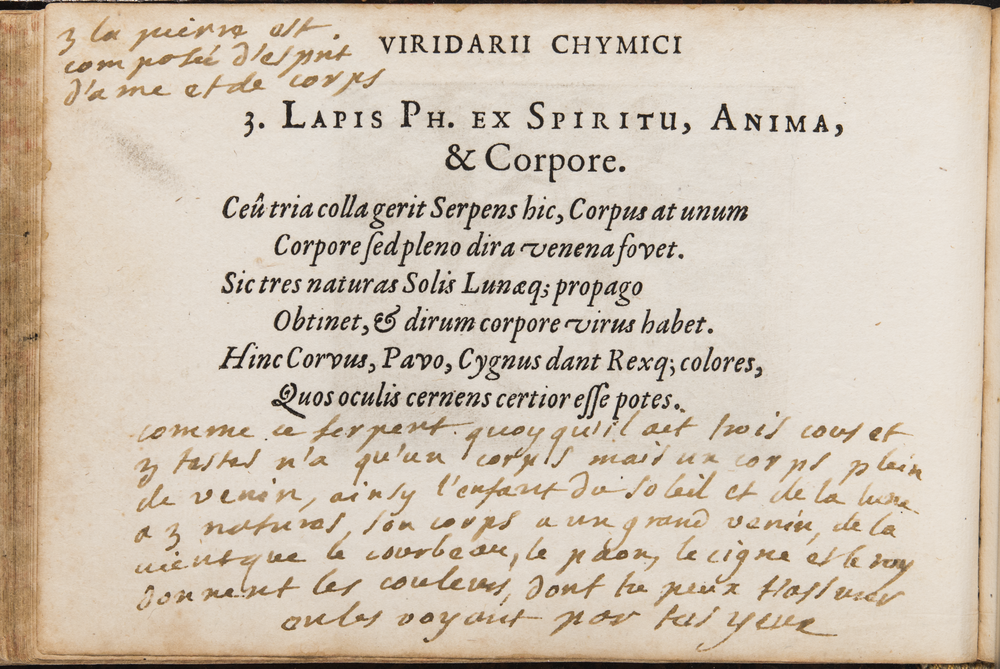 3 la pierre est
composée d'esprit
d'ame et de corps
VIRIDARII CHYMICI
3. LAPIS PH. EX SPIRITU, ANIMA,
& Corpore.
Ceû tria colla gerit Serpens hic, Corpus at unum
Corpore ſed pleno dira venena fovet.
Sic tres naturas Solis Lunæq; propago
Obtinet, & dirum corpore virus habet.
Hinc Corvus, Pavo, Cygnus dant Rexq; colores,
Quos oculis cernens certior eſſe potes.
comme ce serpent quoyqu'il ait trois cous et
3 testes n'a qu'un corps mais un corps plein
de venin, ainsy l'enfant du soleil et de la lune
a 3 natures, son corps a un grand venin, de la
vient que le courbeau, le paon, le cigne et le roy
donnent les couleurs, dont tu peux t'assurer
en les voyant par tes yeux